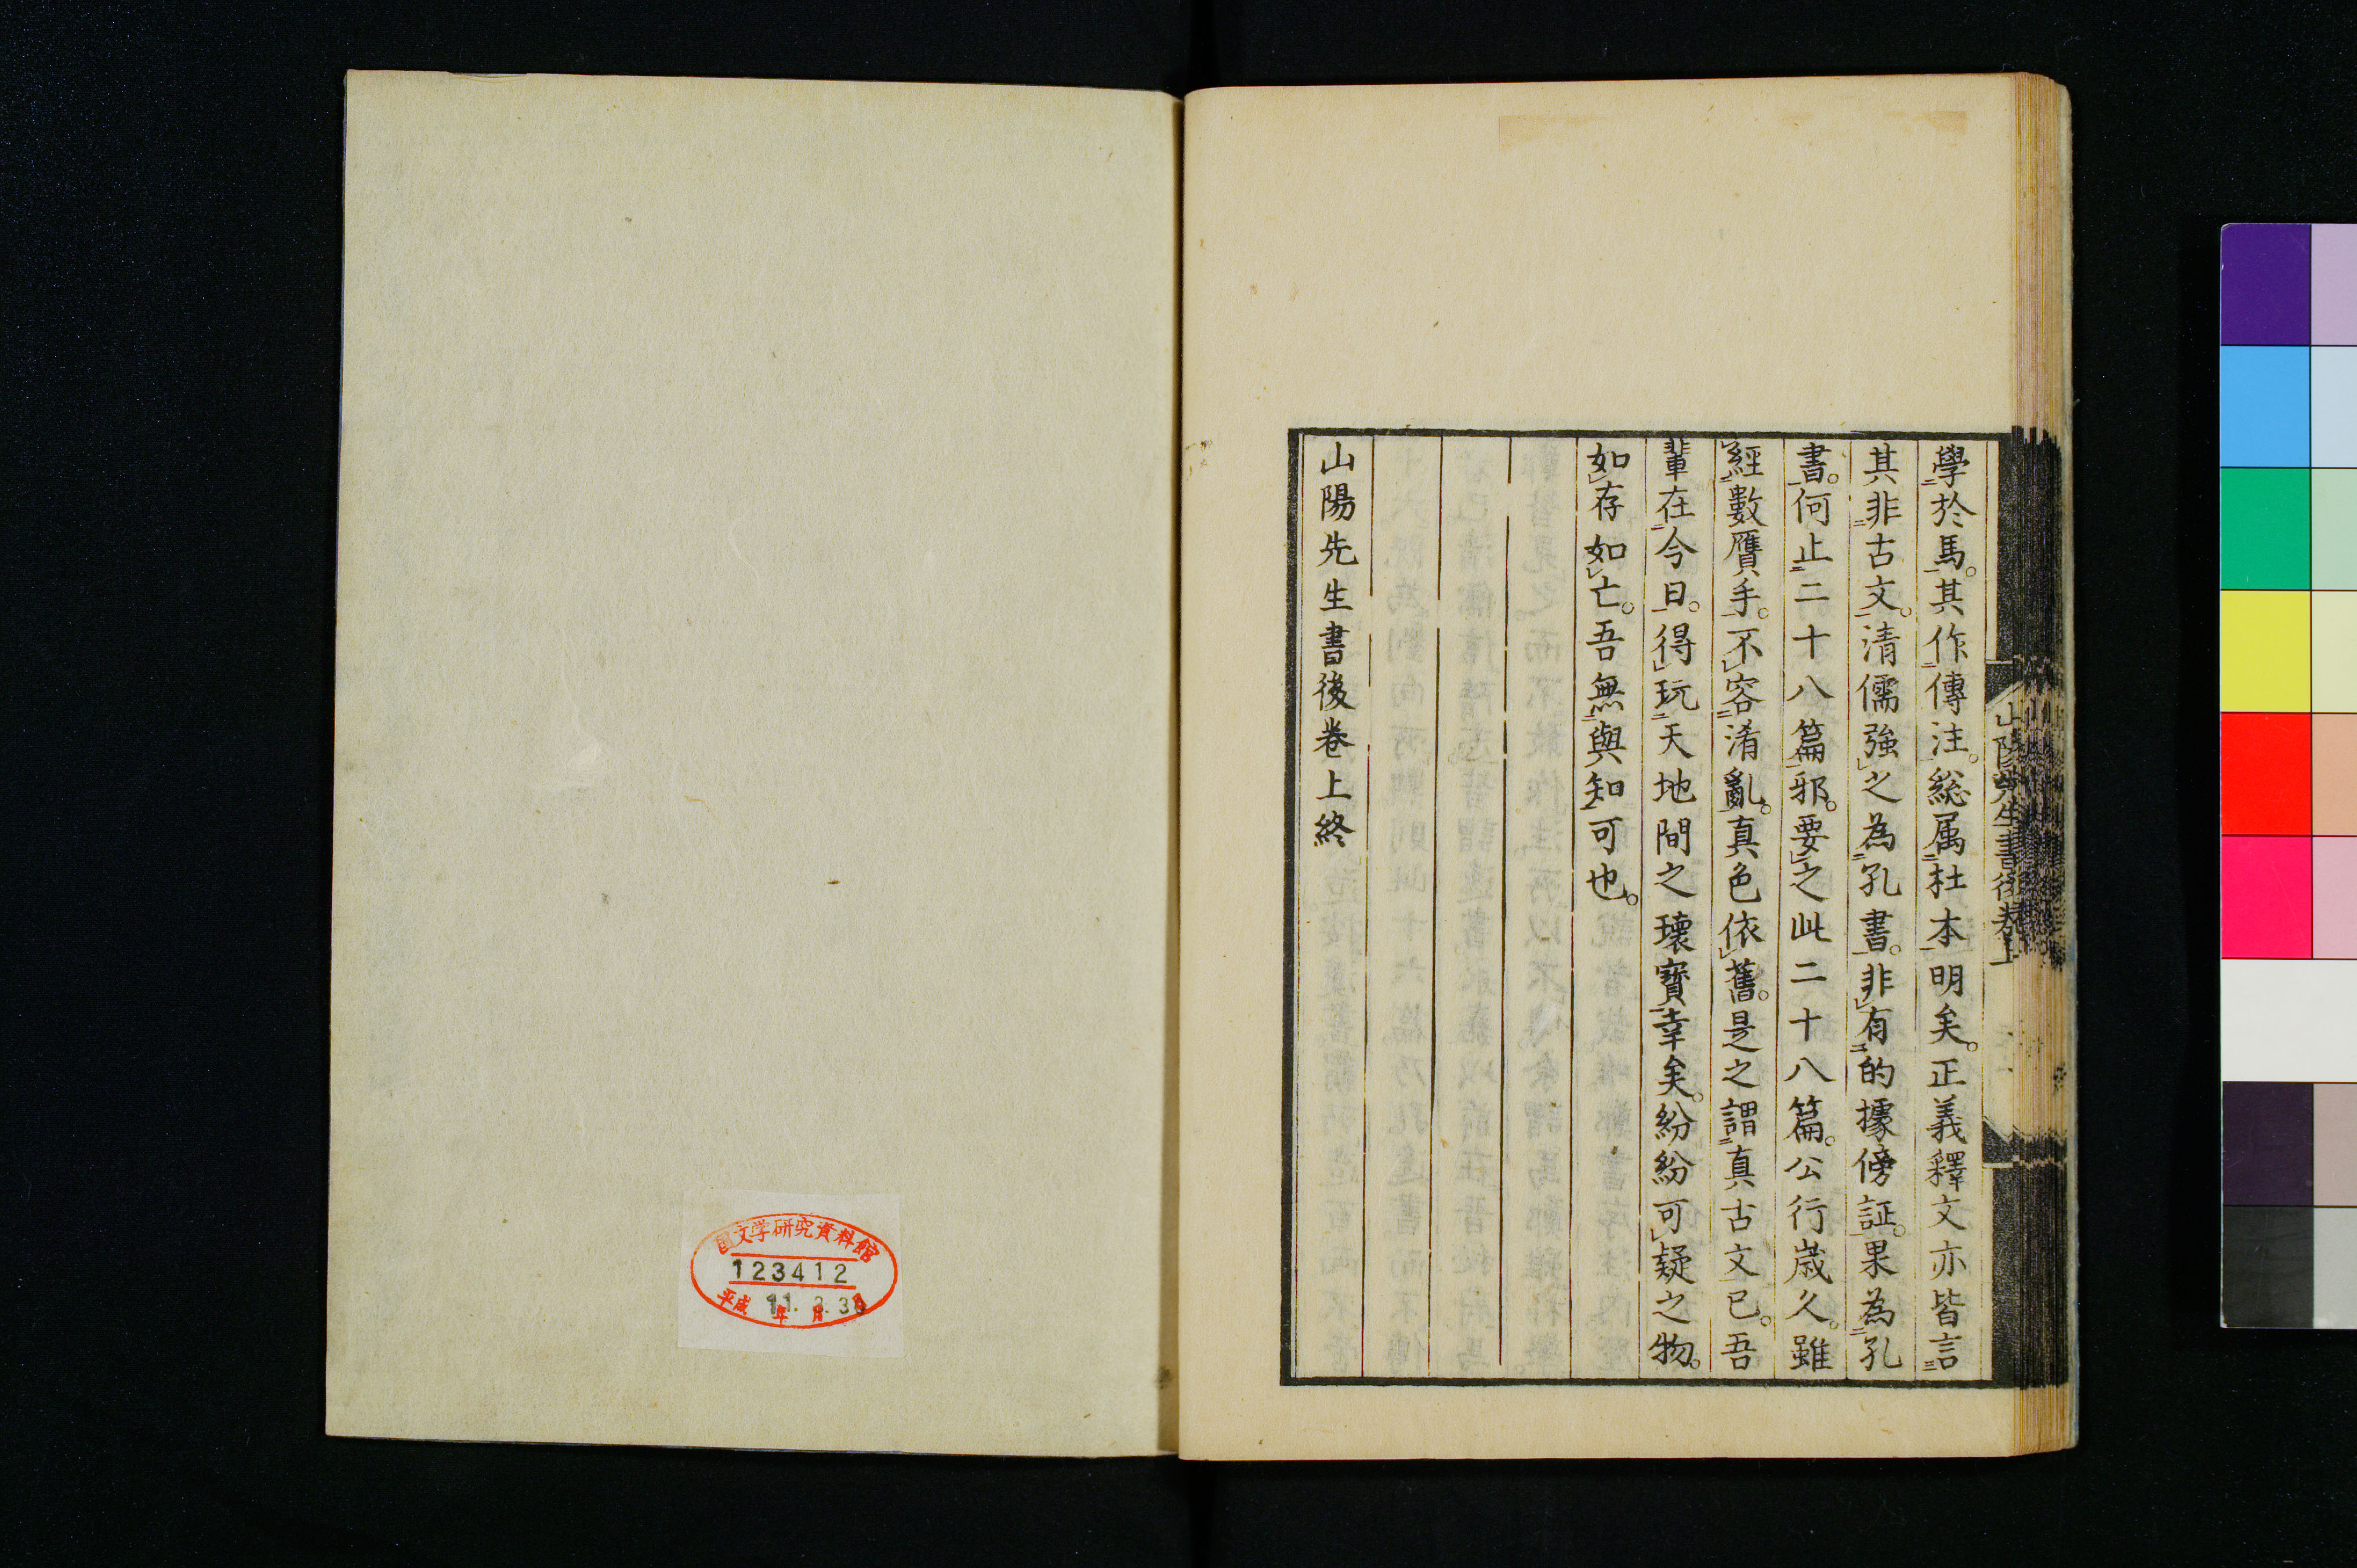 學於馬。其作傳注。総属杜本明矣。正義釋文亦皆言
其非古文。清儒強之為孔書。非有的據傍証。果為孔
書。何止二十八篇邪。要之此二十八篇。公行歳久。雖
經數贋手。不容淆亂。真色依舊。是之謂真古文已。吾
輩在今日。得玩天地間之瓌寶幸矣。紛紛可疑之物。
如存如亡。吾無與知可也。
山陽先生書後卷上終
山陽先生書後卷上
国文学研究資料館
123412
平成 11年 3月 30日